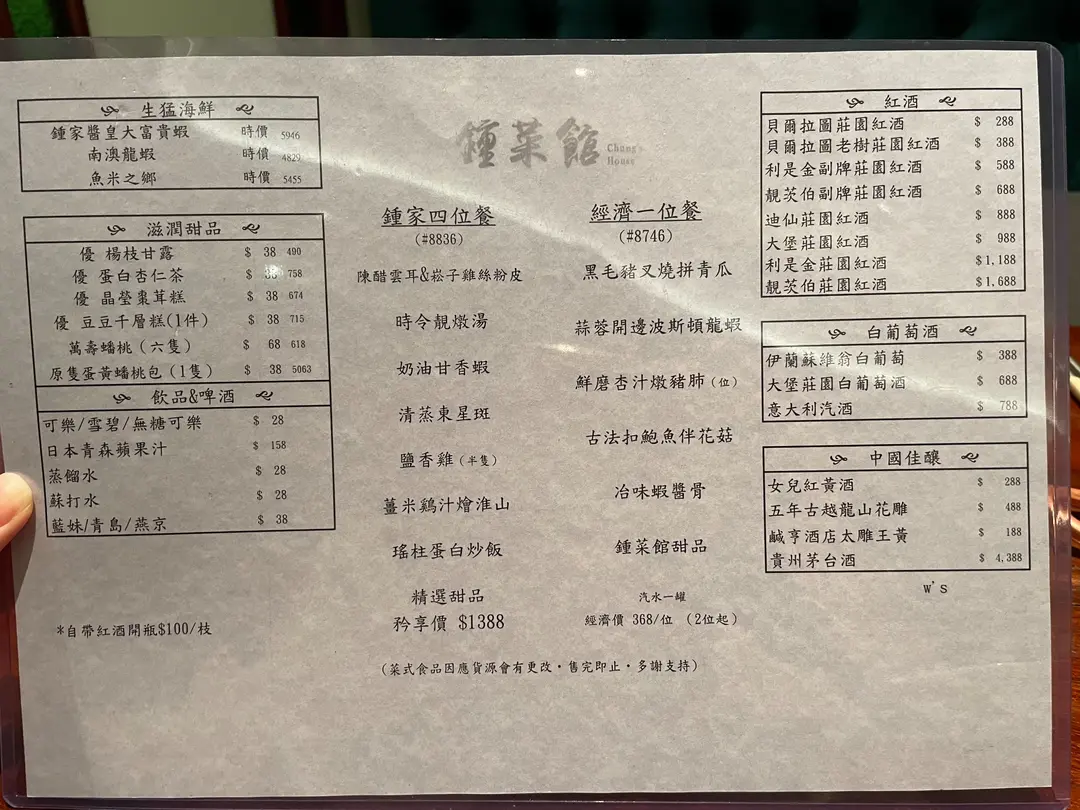 生猛海鮮
鍾家醬皇大富貴蝦 時價 5946
南澳龍蝦 時價 4829
魚米之鄉 時價 5455
滋潤甜品
優 楊枝甘露 $ 38 490
優 蛋白杏仁茶 $ 38 758
優 晶瑩棗茸糕 $ 38 674
優 豆豆千層糕(1件) $ 38 715
萬壽蟠桃(六隻) $ 68 618
原隻蛋黃蟠桃包(1隻) $ 38 5063
飲品&啤酒
可樂/雪碧/無糖可樂 $ 28
日本青森蘋果汁 $ 158
蒸餾水 $ 28
蘇打水 $ 28
藍妹/青島/燕京 $ 38
*自帶紅酒開瓶$100/枝
鍾菜館
Chung's
House
鍾家四位餐
(#8836)
陳醋雲耳&崧子雞絲粉皮
時令靚燉湯
奶油甘香蝦
清蒸東星斑
鹽香雞(半隻)
薑米鷄汁燴淮山
瑤柱蛋白炒飯
精選甜品
矜享價 $1388
經濟一位餐
(#8746)
黑毛豬叉燒拼青瓜
蒜蓉開邊波斯頓龍蝦
鮮磨杏汁燉豬肺(位)
古法扣鮑魚伴花菇
冶味蝦醬骨
鍾菜館甜品
汽水一罐
經濟價 368/位 (2位起)
(菜式食品因應貨源會有更改・售完即止・多謝支持)
紅酒
貝爾拉圖莊園紅酒 $ 288
貝爾拉圖老樹莊園紅酒 $ 388
利是金副牌莊園紅酒 $ 588
靚茨伯副牌莊園紅酒 $ 688
迪仙莊園紅酒 $ 888
大堡莊園紅酒 $ 988
利是金莊園紅酒 $1,188
靚茨伯莊園紅酒 $1,688
白葡萄酒
伊蘭蘇維翁白葡萄 $ 388
大堡莊園白葡萄酒 $ 688
意大利汽酒 $ 788
中國佳釀
女兒紅黃酒 $ 288
五年古越龍山花雕 $ 488
鹹亨酒店太雕王黃 $ 188
貴州茅台酒 $ 4,388
W's